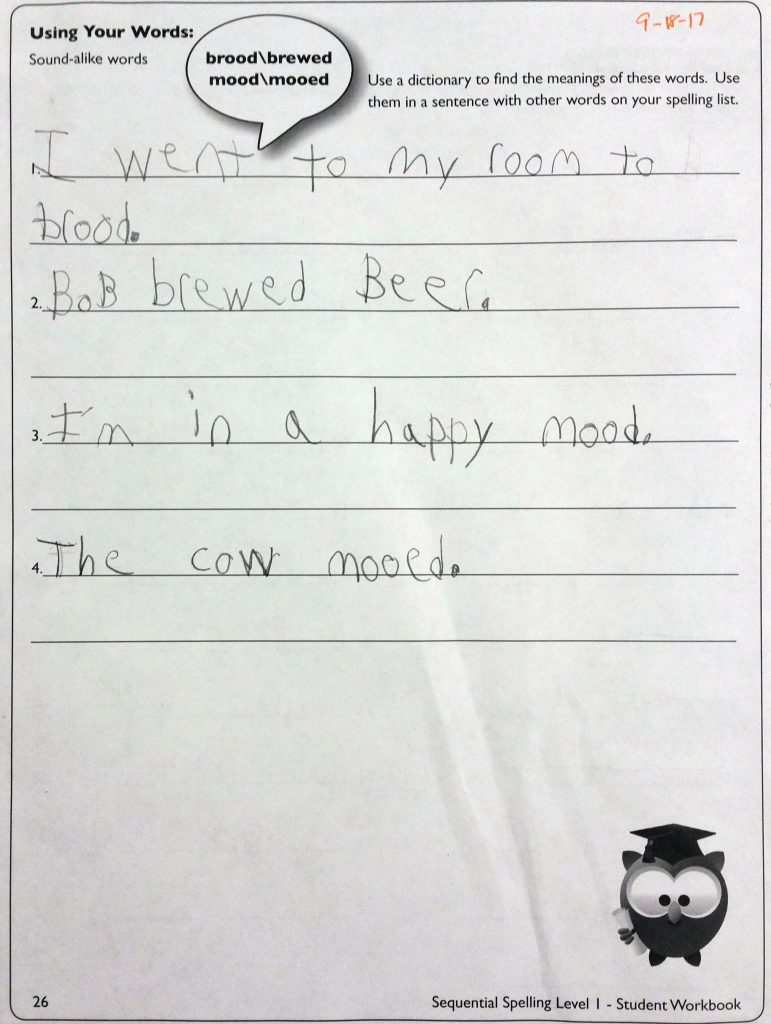 Using Your Words:
9-18-17
Sound-alike words
brood\brewed
mood\mooed
Use a dictionary to find the meanings of these words. Use
them in a sentence with other words on your spelling list.
1. I went to my room to
brood.
2. BoB brewed Beer.
3. I'm in a happy mood.
4. The cow mooed.
26
Sequential Spelling Level 1 - Student Workbook